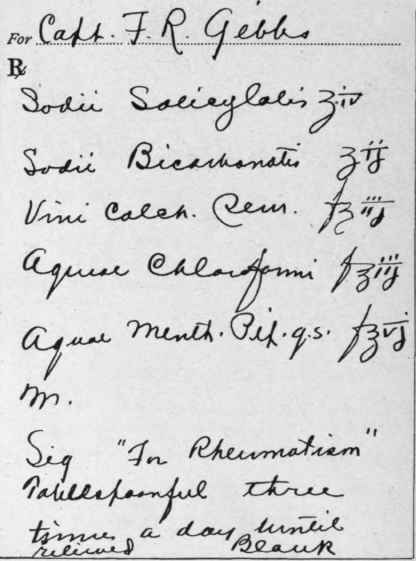 For Capt. F. R. Gebbs
℞
Sodii Salicylatis ʒiv
Sodii Bicarbonatis ʒij
Vini Colch. Sem. fʒiij
Aquae Chloroformi f℥iij
Aquae Menth. Pip. q.s. f℥vj
M.
Sig "For Rheumatism"
Tablespoonful three
times a day until
relieved Blank